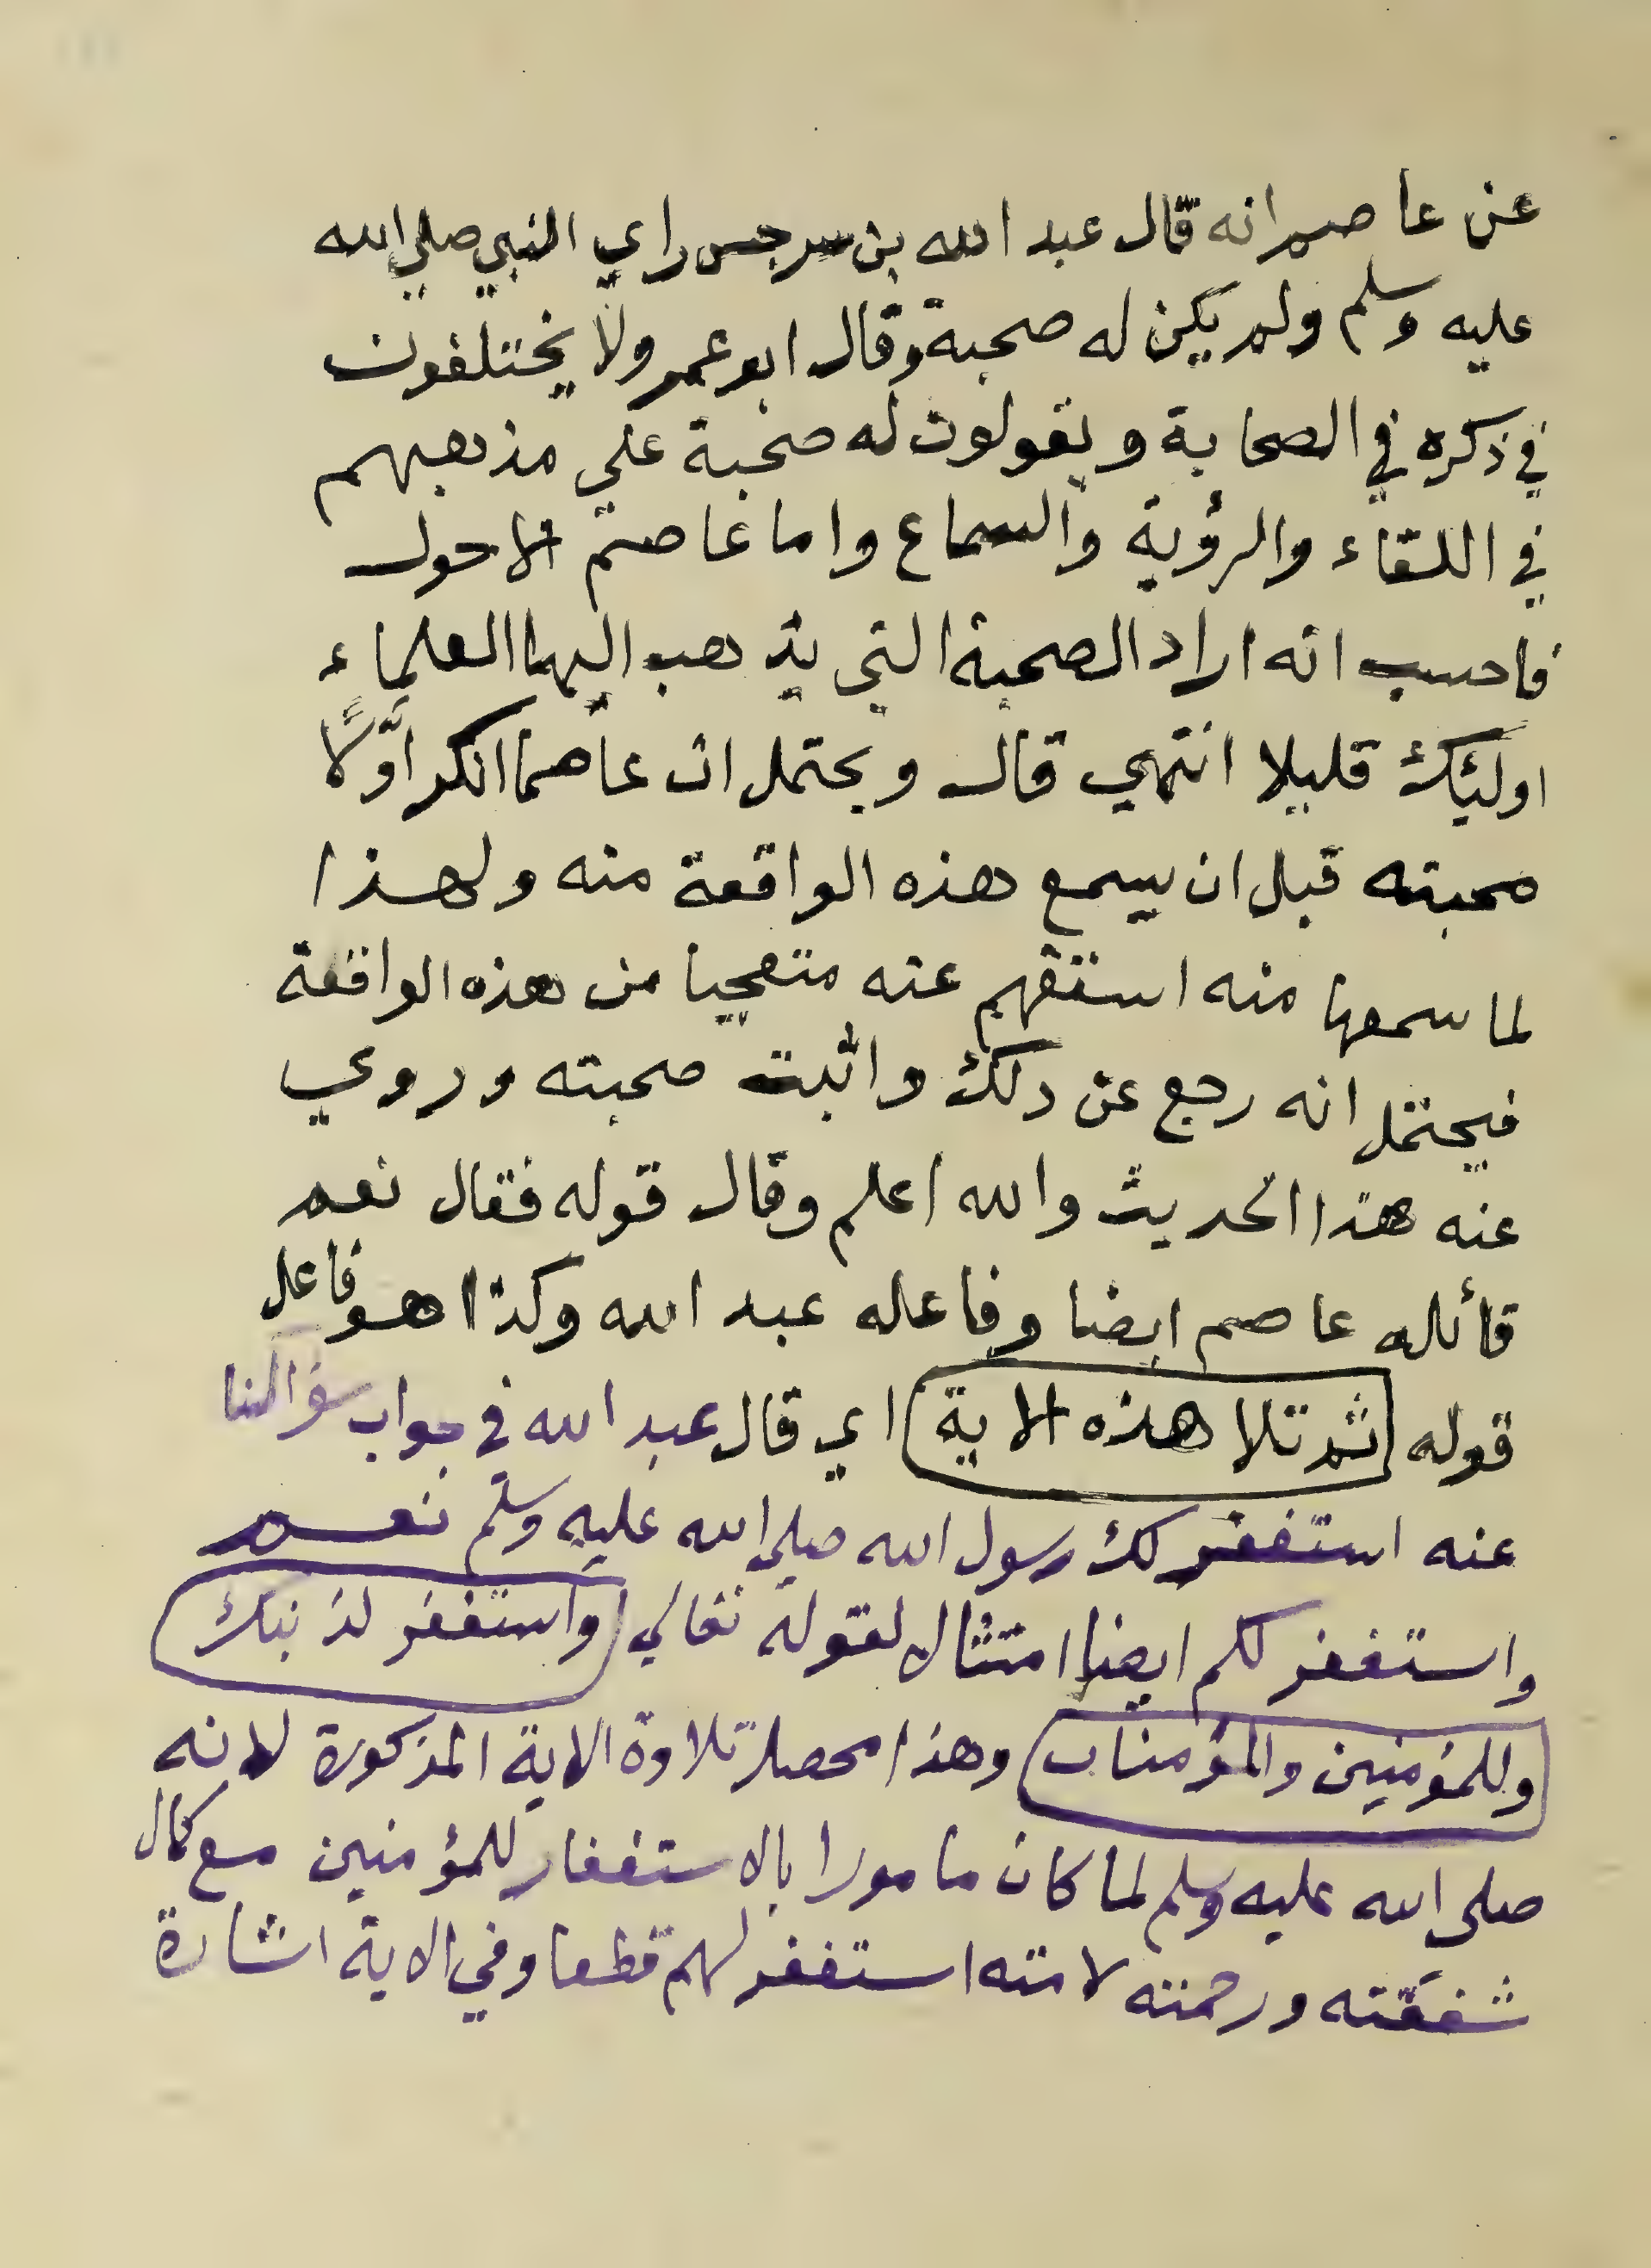 عن عاصم انه قال عبد الله بن سرجس راي النبي صلي الله
عليه وسلم ولم يكن له صحبة وقال ابو عمر ولا يختلفون
في ذكره في الصحابة ويقولون له صحبة علي مذهبهم
في اللقاء والرؤية والسماع واما عاصم الاحول
فاحسب انه اراد الصحبة التي يذهب اليها العلماء
اوليئك قليلا انتهي قال ويحتمل ان عاصما انكر اوّلًا
صحبته قبل ان يسمع هذه الواقعة منه ولهذا
لما سمعها منه استفهم عنه متعجبا من هذه الواقعة
فيحتمل انه رجع عن ذلك واثبت صحبته وروي
عنه هذا الحديث والله اعلم وقال قوله فقال نعم
قائله عاصم ايضا وفاعله عبد الله وكذا هو فاعل
قوله ثم تلا هذه الاية اي قال عبد الله في جواب سؤالنا
عنه استغفر لك رسول الله صلي الله عليه وسلم نعم
واستغفر لكم ايضا امتثالا لقوله تعالي واستغفر لذنبك
وللمؤمنين والمؤمنات وهذا محصل تلاوة الاية المذكورة لانه
صلى الله عليه وسلم لما كان مامورا بالاستغفار للمؤمنين مع كمال
شفقته ورحمته لامته استغفر لهم قطعا وفي الاية اشارة